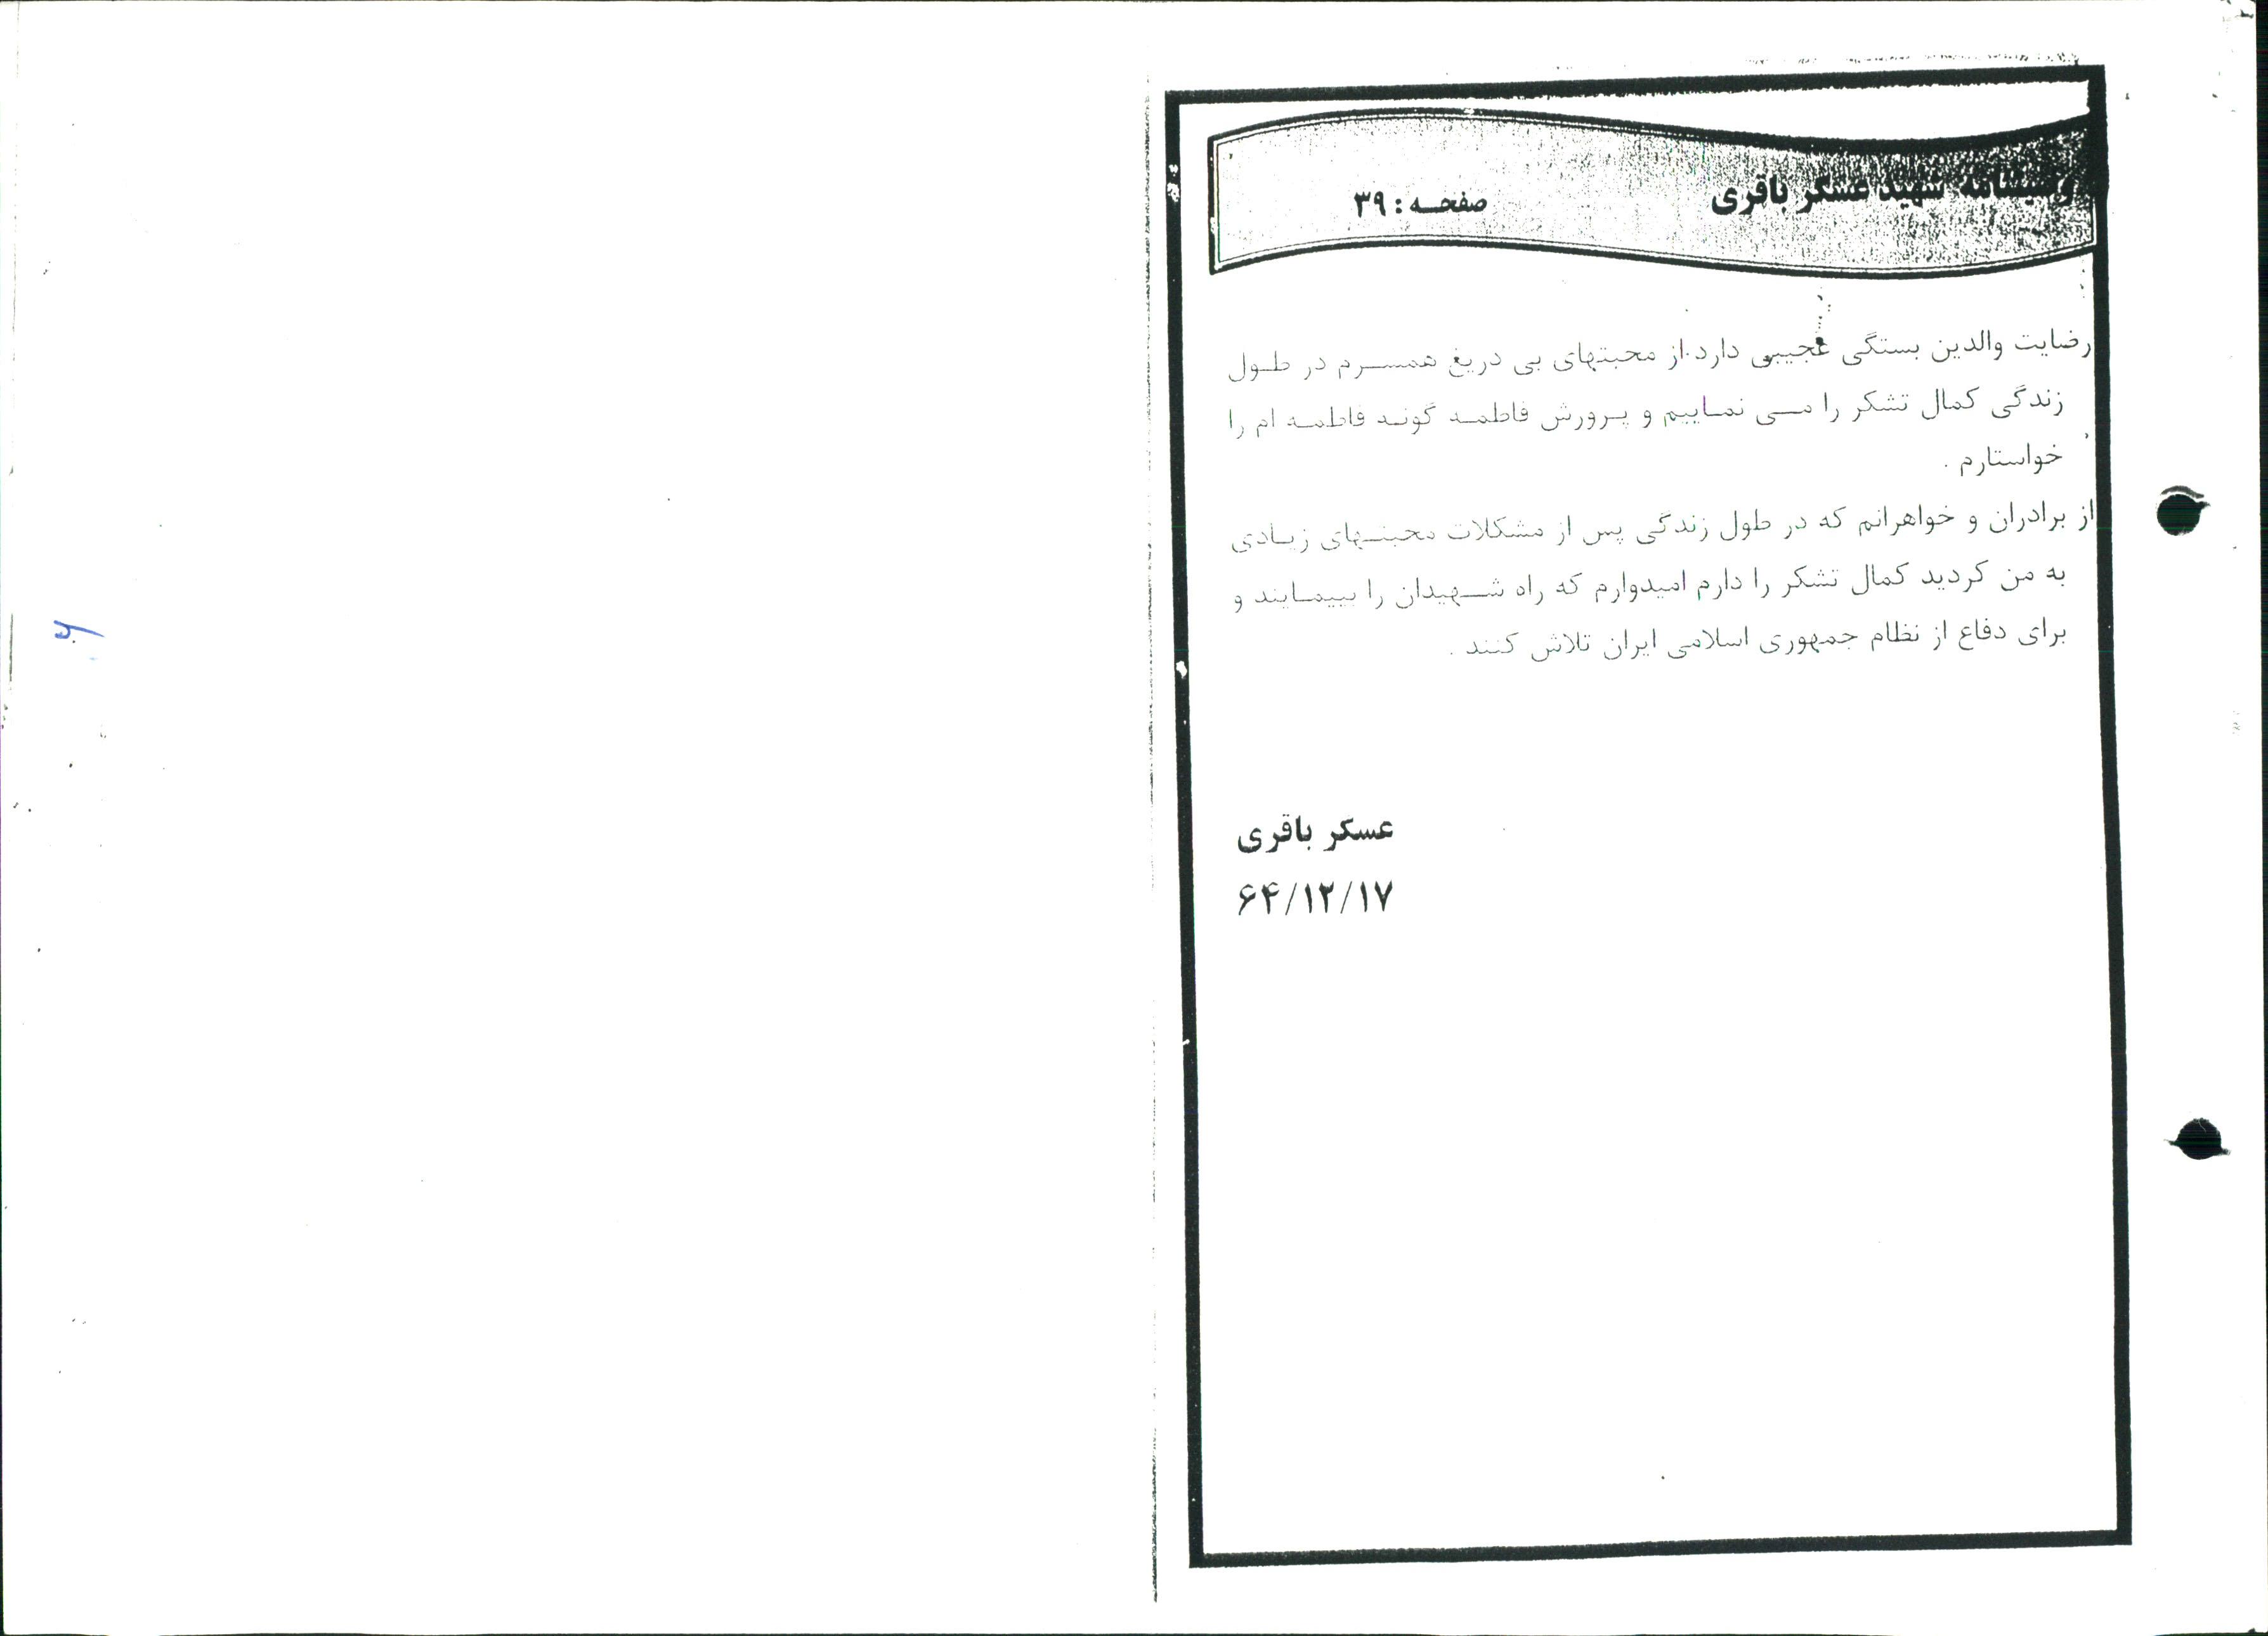 وصیتنامه شهید عسکر باقری
صفحه : ۳۹
رضایت والدین بستگی عجیبی دارد.از محبتهای بی دریغ همسرم در طول
زندگی کمال تشکر را می نماییم و پرورش فاطمه گونه فاطمه ام را
خواستارم .
از برادران و خواهرانم که در طول زندگی پس از مشکلات محبتهای زیادی
به من کردید کمال تشکر را دارم امیدوارم که راه شهیدان را بپیمایند و
برای دفاع از نظام جمهوری اسلامی ایران تلاش کنند .
عسکر باقری
۶۴/۱۲/۱۷